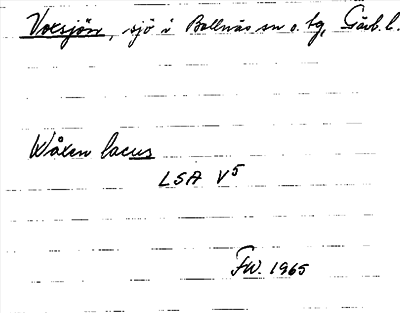 Voxsjön, sjö i Bollnäs sn o. tg, Gävl. l.
Wåxen lacus
LSA V5
FW. 1965